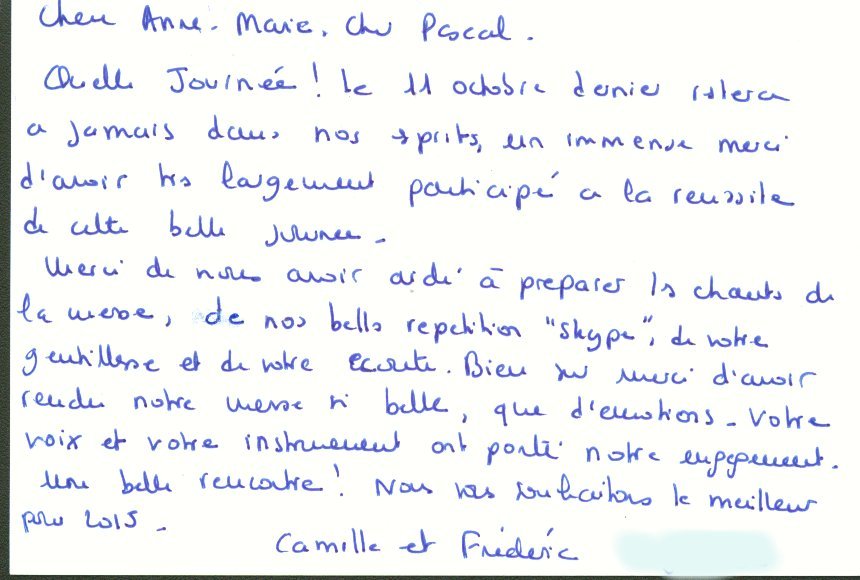 Chere Anne-Marie, Cher Pascal.
Quelle Journée! Le 11 octobre dernier restera
a jamais dans nos esprits, un immense merci
d'avoir très largement participé a la reussite
de cette belle journee.
Merci de nous avoir aidé à preparer les chants de
la messe, de nos belles repetition "Skype", de votre
gentillesse et de votre ecoute. Bien sur merci d'avoir
rendu notre messe si belle, que d'emotions. Votre
voix et votre instrument ont porté notre engagement.
Une belle rencontre! Nous vous souhaitons le meilleur
pour 2015.
Camille et Fréderic